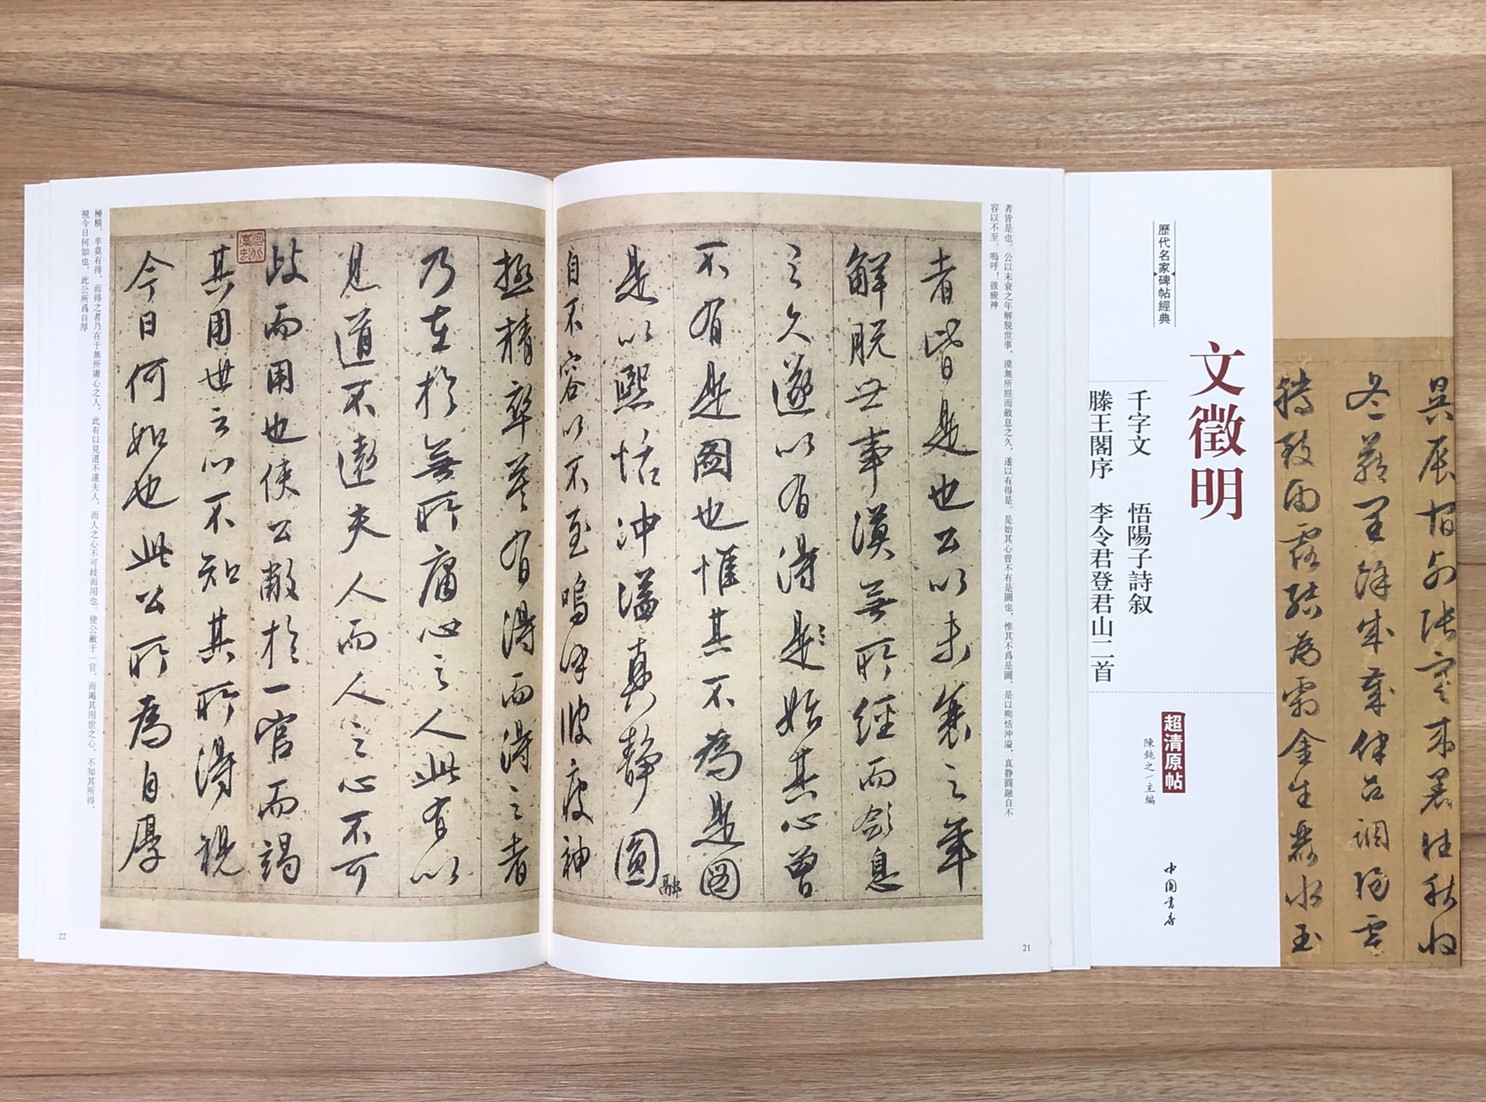 歷代名家碑帖經典
文徵明
千字文　悟陽子詩叙
滕王閣序　李令君登君山二首
超清原帖
陳鈍之／主編
中国書店
者皆是也。公以未衰之年解脱世事，漠無所經而斂息之久，遂以有得是。是始其心曾不有是圖也，惟其不爲是圖，是以熙恬沖溢，真静圓融自不
容以不至。嗚呼！彼疲神
者皆是也公以未衰之年
解脱世事漠無所經而斂息
之久遂以有得是始其心曾
不有是圖也惟其不為是圖
是以熙恬沖溢真靜圓融
自不容以不至嗚呼彼疲神
21
極精卒莫有得而得之者
乃在於無所庸心之人此有以
見道不遠夫人而人之心不可
歧而用也使公敝於一官而竭
其用世之心不知其所得視
今日何如也此公所為自厚
極精，卒莫有得，而得之者乃在于無所庸心之人，此有以見道不遠夫人，而人之心不可歧而用也。使公敝于一官，而竭其用世之心，不知其所得，
視今日何如也，此公所爲自厚
22
爲霜金生麗水玉
冬藏閏餘成歲律吕調陽雲
騰致雨露結
辰宿列張寒來暑往秋收